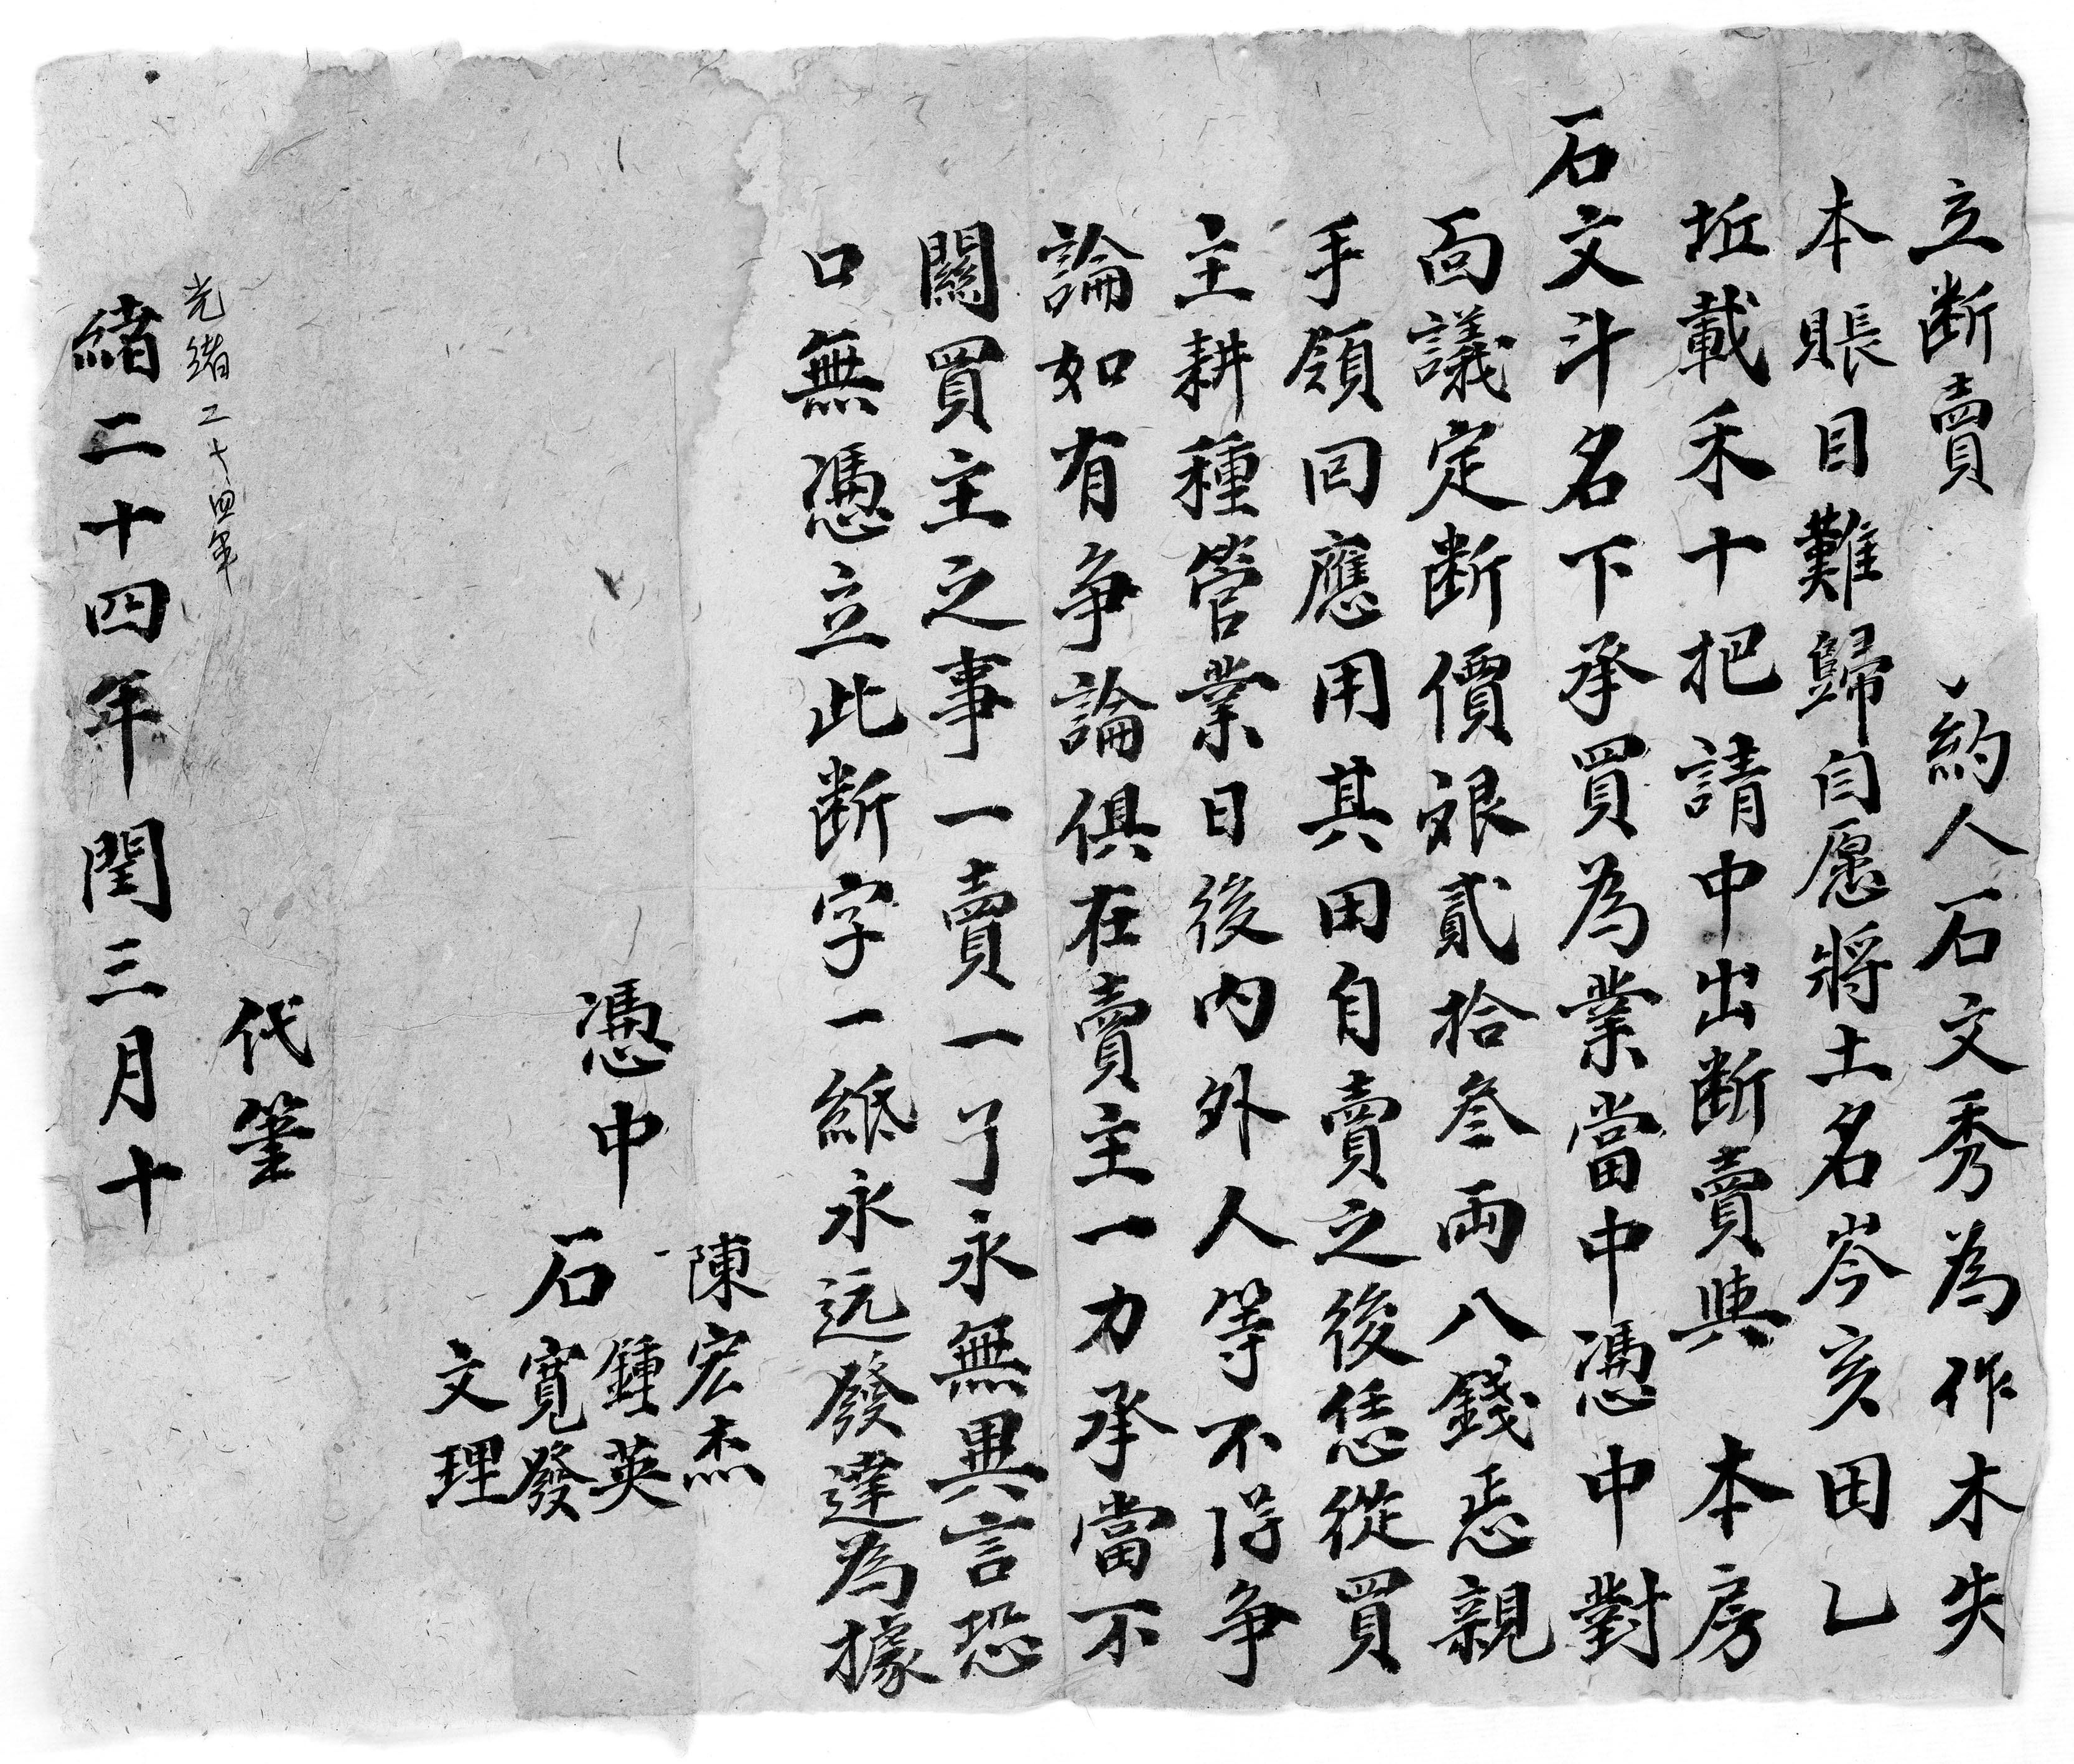 立断賣 約人石文秀為作木失
本賬目難歸自愿將土名岑亥田乚
坵載禾十把請中出断賣與 本房
石文斗名下承買為業當中憑中對
面議定断價銀貳拾叁両八錢恁親
手領回應用其田自賣之後恁從買
主耕種管業日後内外人等不得争
論如有争論俱在賣主一力承當不
關買主之事一賣一了永無異言恐
口無憑立此断字一紙永远發達為據
陳宏杰
憑中 石 鍾英
寛發
文理
代筆
光緒二十四年
緒二十四年閏三月十